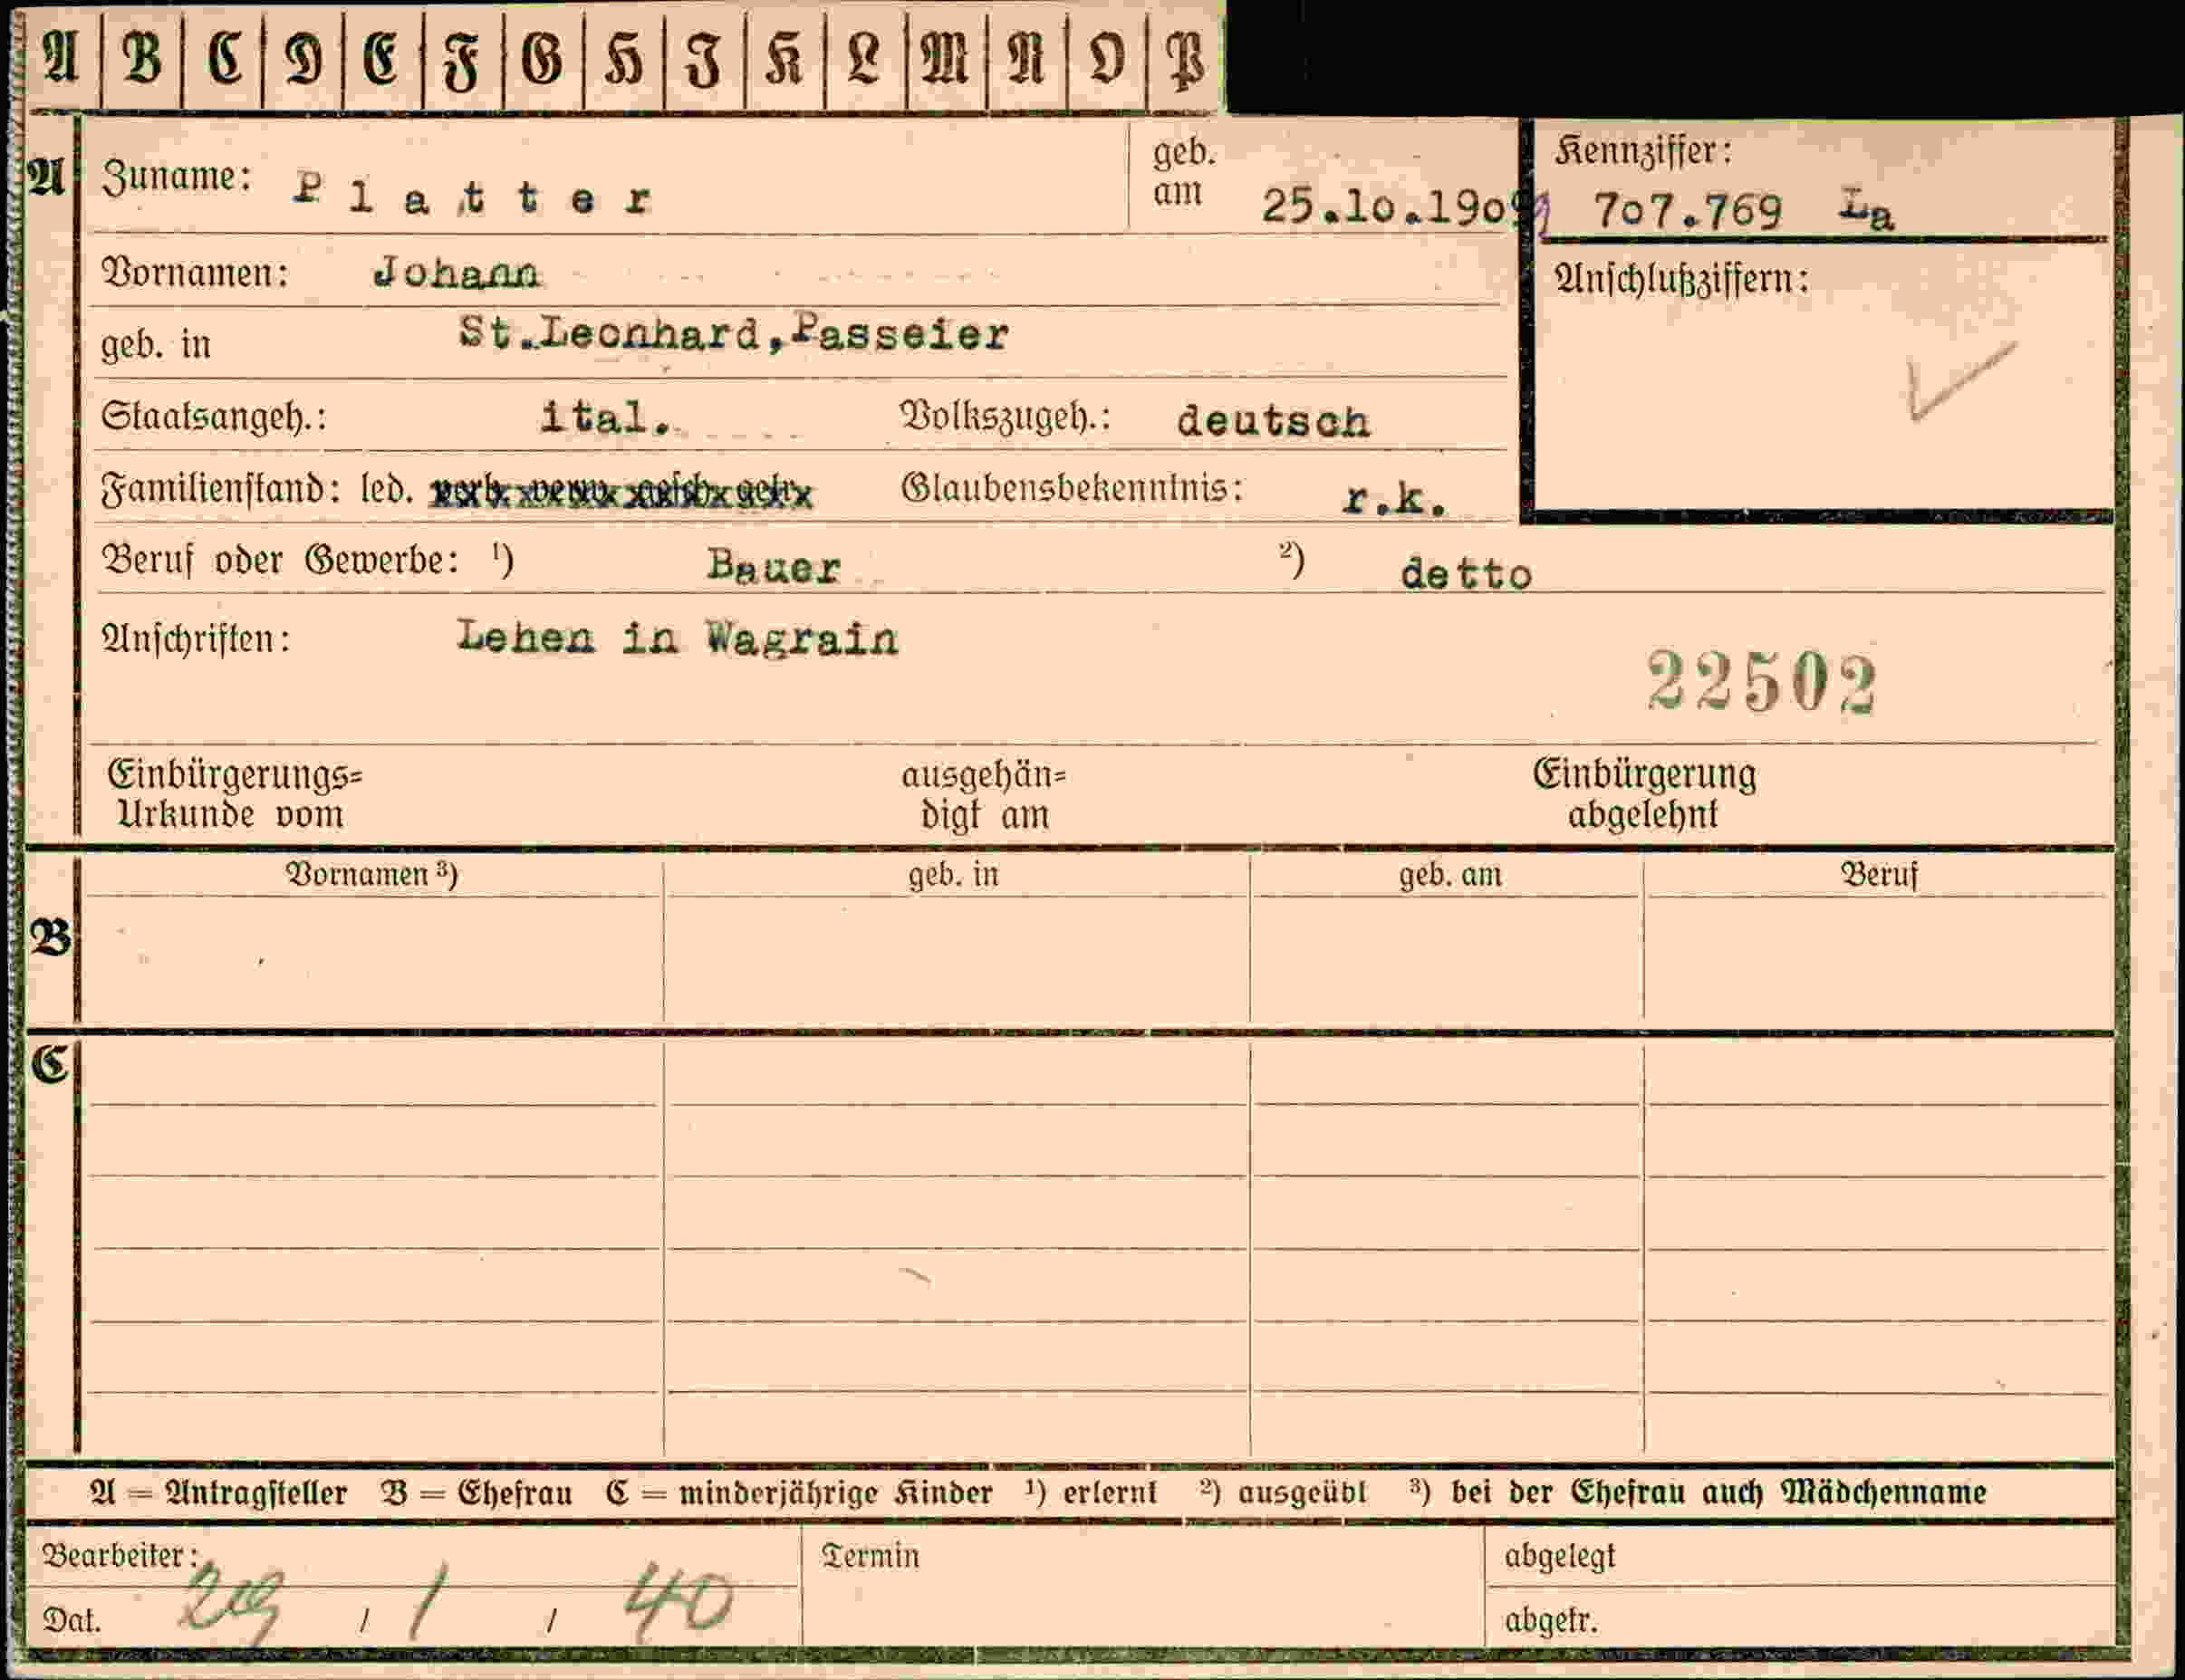 A B C D E F G H I K L M N O P
A Zuname: Platter geb. am 25.10.1909 Kennziffer: 707.769 La
Vornamen: Johann Anschlußziffern:
geb. in St.Leonhard,Passeier
Staatsangeh.: ital. Volkszugeh.: deutsch
Familienstand: led. verh. verw. gesch. getr. Glaubensbekenntnis: r.k.
Beruf oder Gewerbe: ¹) Bauer ²) detto
Anschriften: Lehen in Wagrain
22502
Einbürgerungs= ausgehän= Einbürgerung
Urkunde vom digt am abgelehnt
Vornamen ³) geb. in geb. am Beruf
B
C
A = Antragsteller B = Ehefrau C = minderjährige Kinder ¹) erlernt ²) ausgeübt ³) bei der Ehefrau auch Mädchenname
Bearbeiter: Termin abgelegt
Dat. 29 / 1 / 40 abgetr.